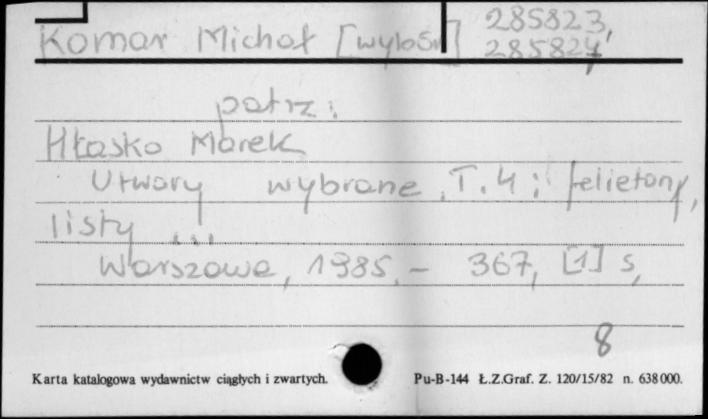 Komar Michał [wybór] 285823,
285824
patrz:
Hłasko Marek
Utwory wybrane. T. 4: felietony,
listy ...
Warszawa, 1985. - 367, [1] s.
8
Karta katalogowa wydawnictw ciągłych i zwartych. Pu-B-144 Ł.Z.Graf. Z. 120/15/82 n. 638000.